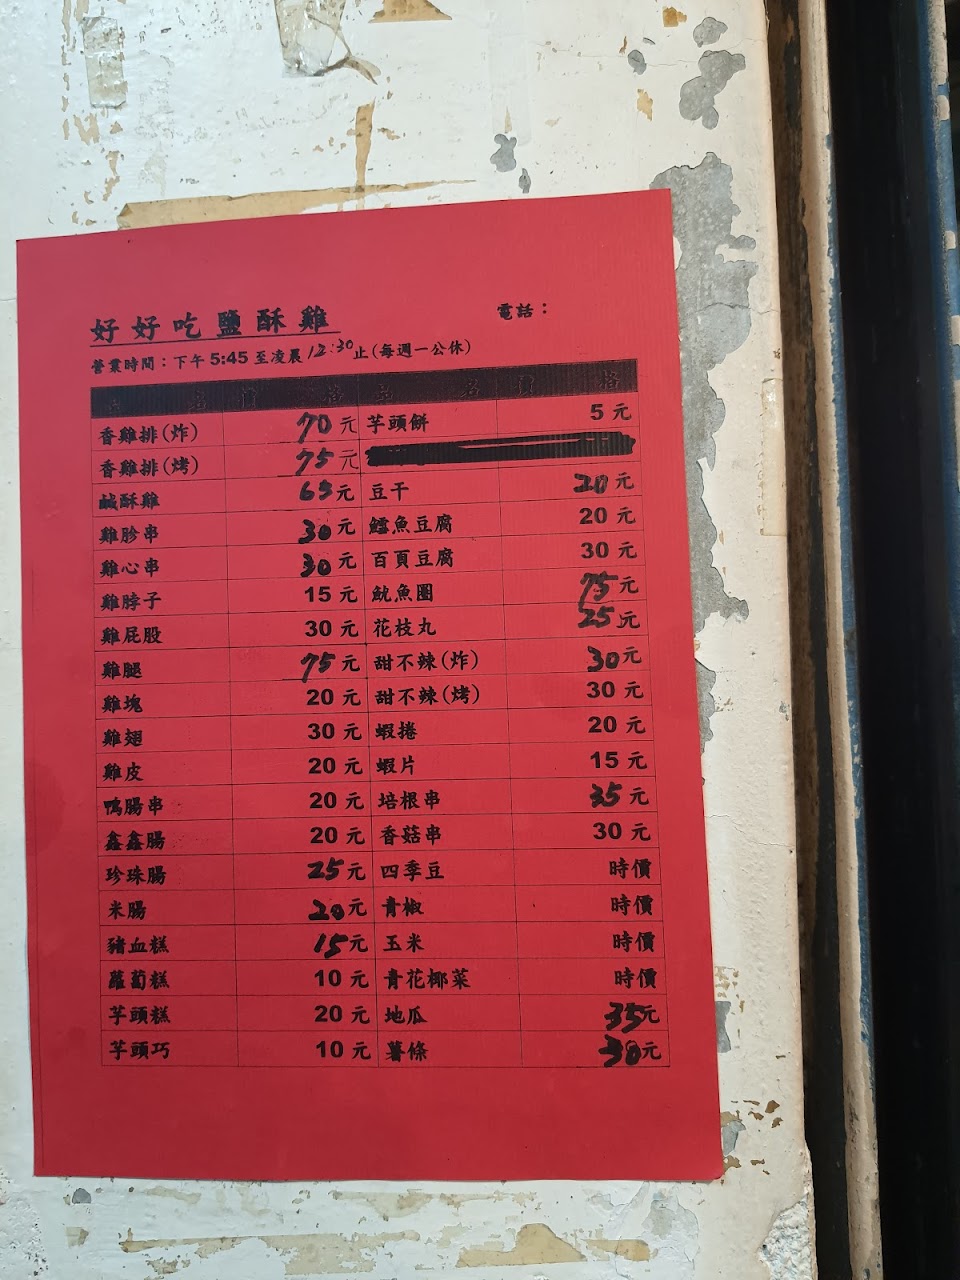 好好吃鹽酥雞 電話：
營業時間：下午 5:45 至凌晨 12:30 止(每週一公休)
品名 價格 品名 價格
香雞排(炸) 70 元 芋頭餅 5 元
香雞排(烤) 75 元
鹹酥雞 65 元 豆干 20 元
雞胗串 30 元 鱈魚豆腐 20 元
雞心串 30 元 百頁豆腐 30 元
雞脖子 15 元 魷魚圈 75 元
雞屁股 30 元 花枝丸 25 元
雞腿 75 元 甜不辣(炸) 30 元
雞塊 20 元 甜不辣(烤) 30 元
雞翅 30 元 蝦捲 20 元
雞皮 20 元 蝦片 15 元
鴨腸串 20 元 培根串 35 元
鑫鑫腸 20 元 香菇串 30 元
珍珠腸 25 元 四季豆 時價
米腸 20 元 青椒 時價
豬血糕 15 元 玉米 時價
蘿蔔糕 10 元 青花椰菜 時價
芋頭糕 20 元 地瓜 35 元
芋頭巧 10 元 薯條 30 元